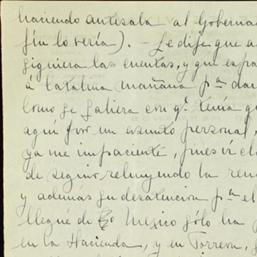 haciendo antesala al Goberna
fin lo vería). - Le dije que a
siguiera las cuentas, y que espera
a Catalina mañana pª dar
como se saliera con qª tenía qu
aquí por un asunto personal,
ya me impaciente, pues si el
de seguir rehuyendo la ren
y además su desatencion pª el
llegué de Mexico sólo ha
en la Hacienda, y en Torreon,